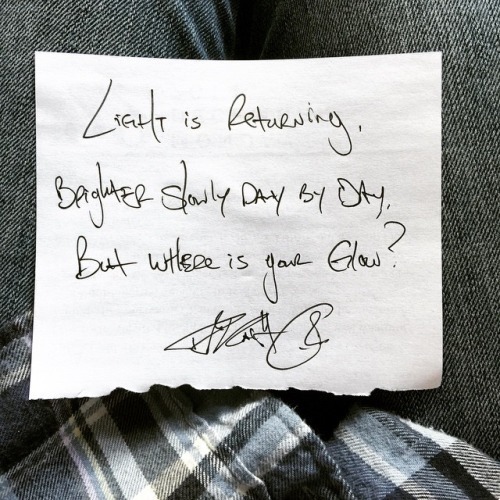 Light is Returning,
Brighter slowly Day by Day,
But where is your Glow?